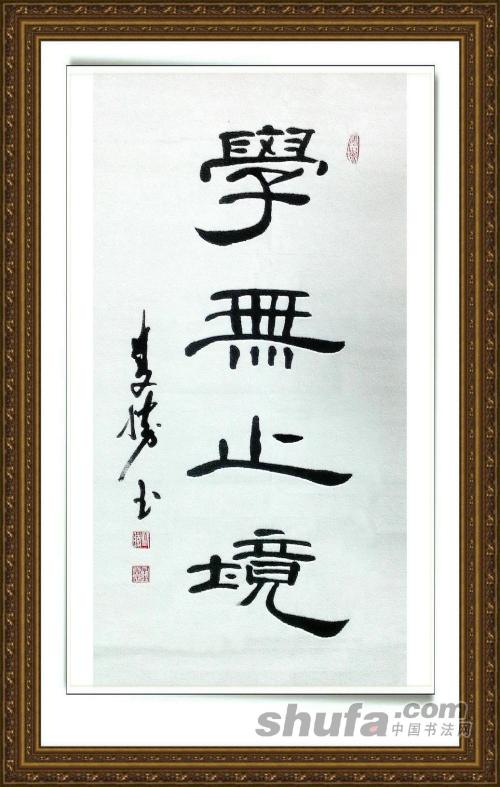 學無止境
shufa.com
中国书法网